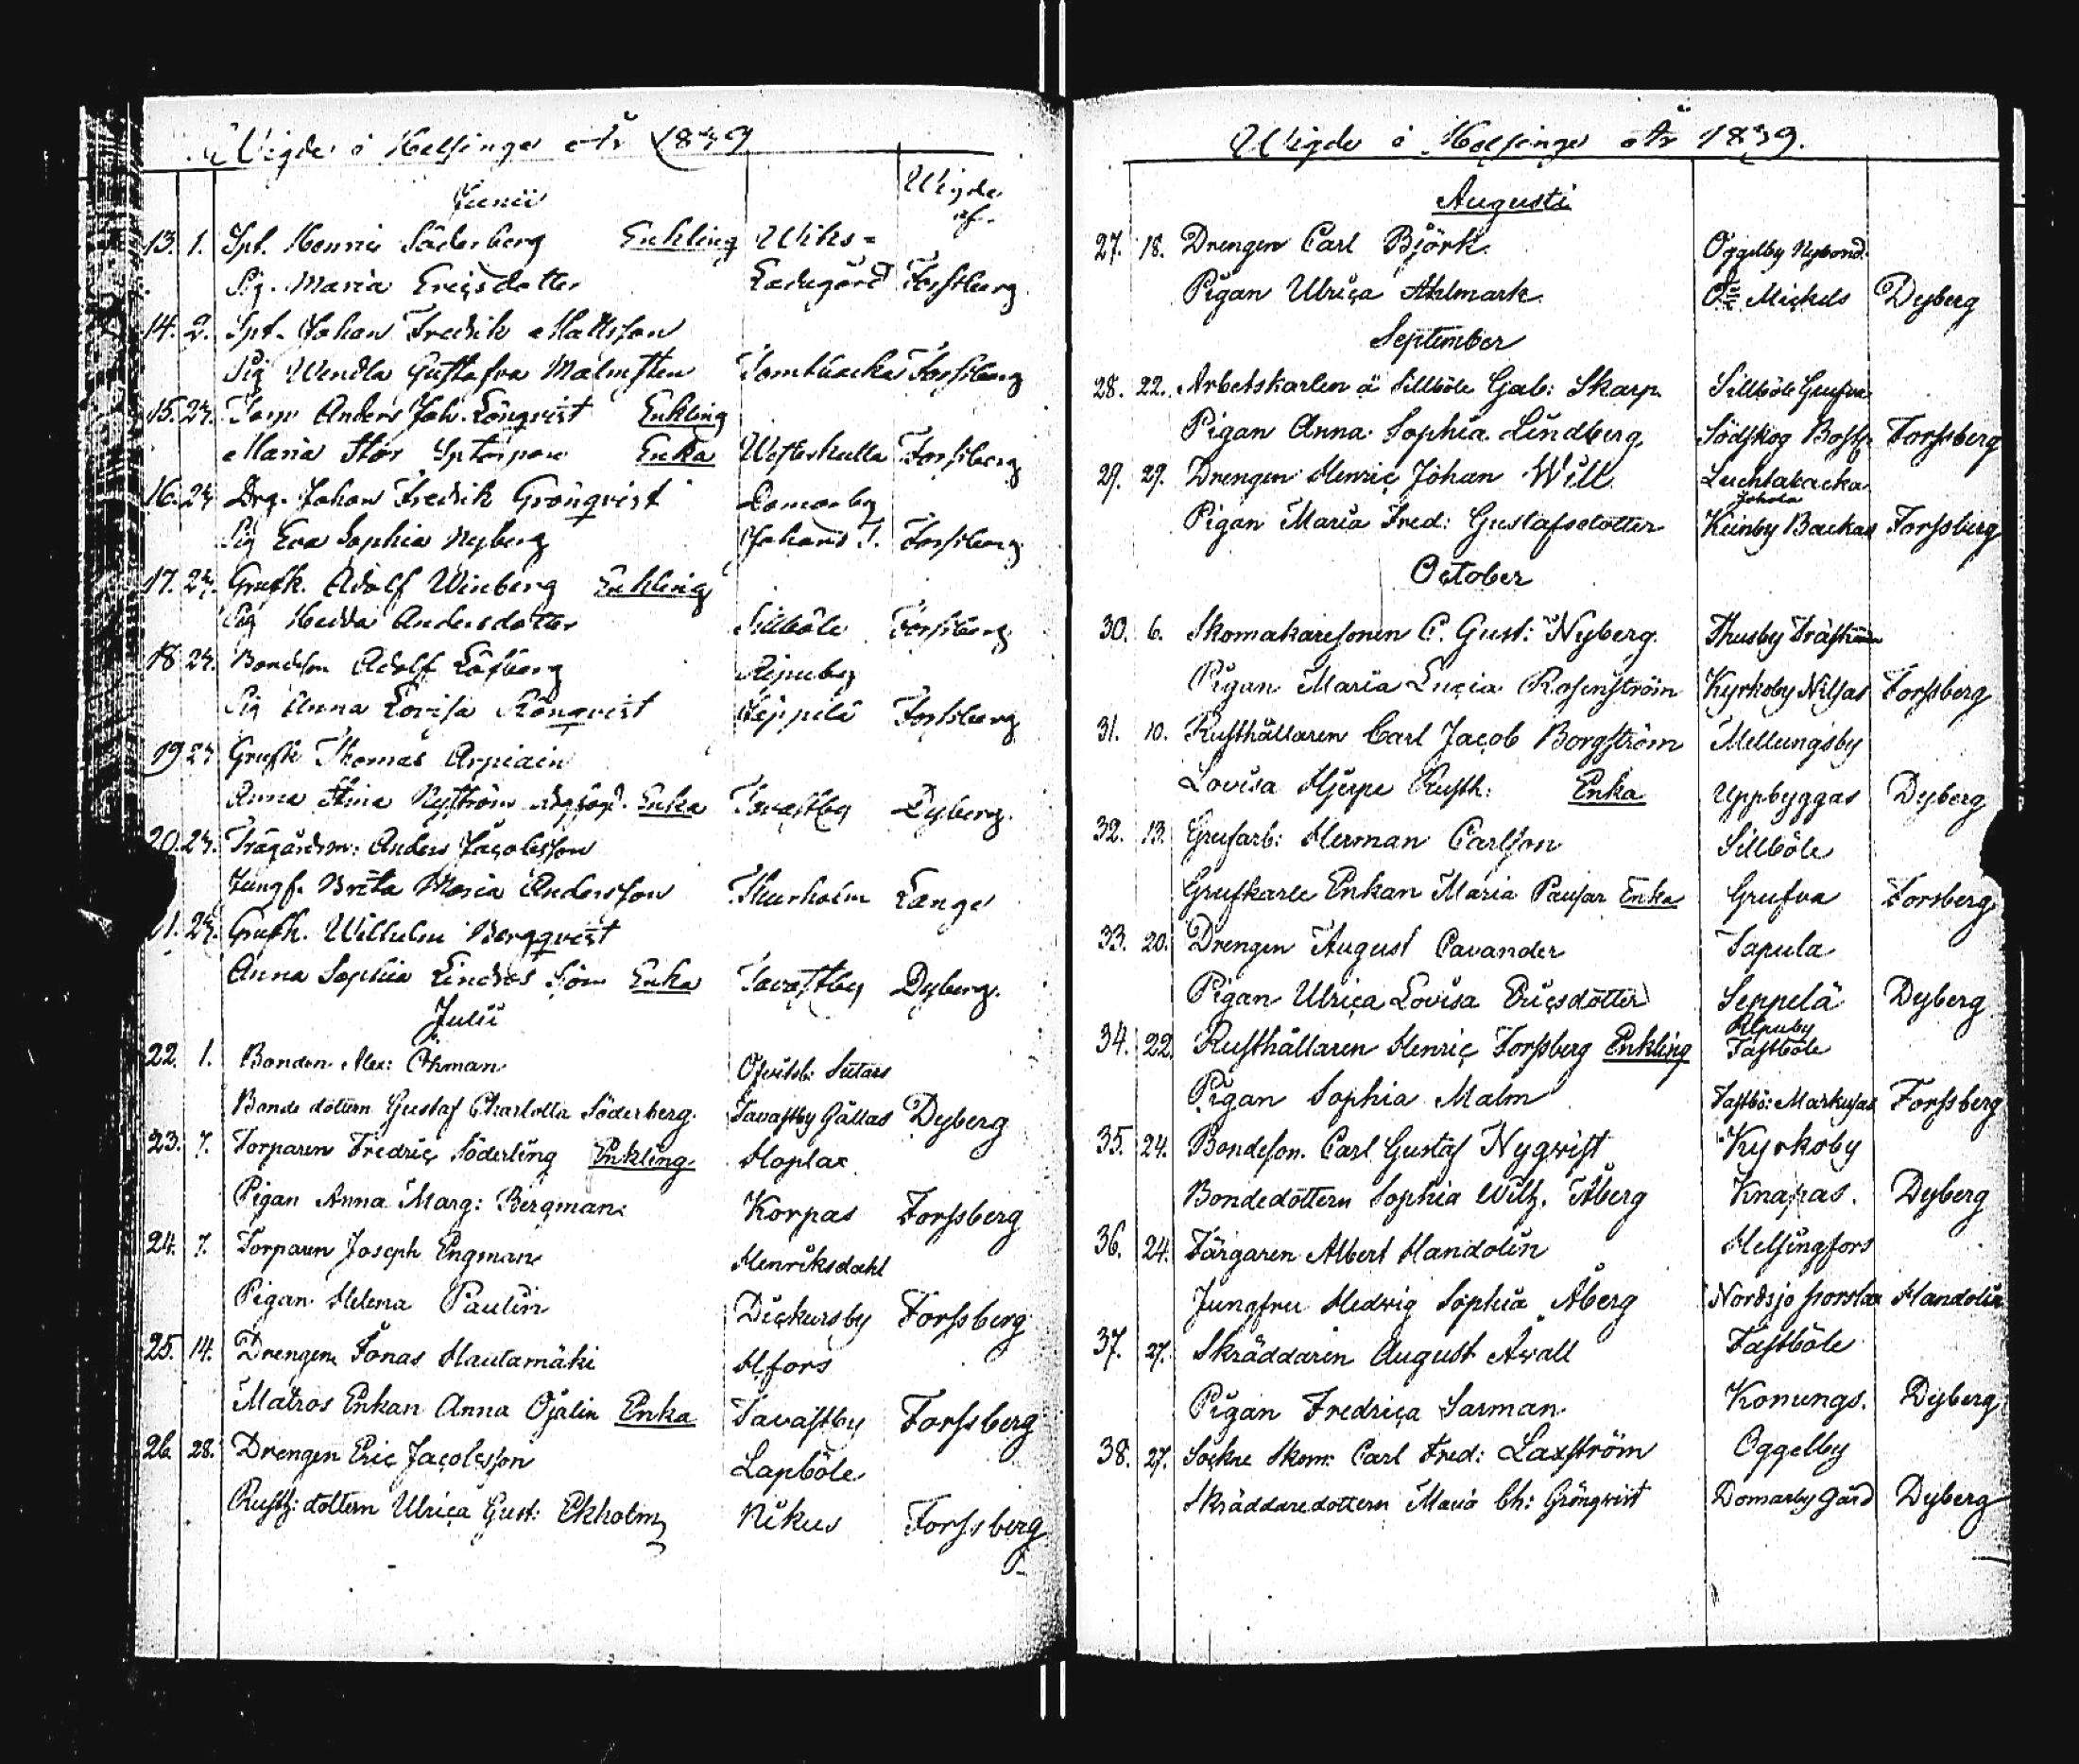 Wigde i Helsinge År 1839
Wigde af.
Junii
13. 1. Spt. Henric Söderberg Enkling Wiks=
Pig. Maria Ericsdotter Ladugård Forssberg
14. 2. Spt. Johan Fredrik Mattsson
Pig Wendla Gustafva Malmsten Tombacka Forssberg
15. 24. Torp Anders Joh. Lönqvist Enkling
Maria Stör Enka Westerkulla Forssberg
16. 24 Drg. Johan Fredrik Grönqvist Domarby
Pig Eva Sophia Nyberg Johans T. Forssberg
17. 24. Grufk. Adolf Winberg Enkling
Pig Hedda Andersdotter Sillböle Forssberg
18 24. Bondeson Adolf Löfberg Ripuby
Pig Anna Lovisa Rönqvist Seppelä Forssberg
19 24 Grufk Thomas Arpiain
Anna Stina Nyström Enka Tavastby Dyberg
20. 24. Trägårdsm: Anders Jacobsson
Jungf. Brita Maria Andersson Thurholm Lange
21. 24. Grufk. Wilhelm Bergqvist
Anna Sophia Lindros Enka Tavastby Dyberg.
Julii
22. 1. Bonden Alex: Öhman Ofvitsb: Sutars
Bonde dottern Gustaf Charlotta Söderberg. Tavastby Gällas Dyberg
23. 7. Torparen Fredric Söderling Enkling. Hoplax
Pigan Anna Marg: Bergman. Korpas Forssberg
24. 7. Torparen Joseph Engman Henriksdahl
Pigan Helena Paulin Dickursby Forssberg
25. 14. Drengen Jonas Hautamäki Hfors
Matros Enkan Anna Öjrlin Enka Tavastby Forssberg
26. 28. Drengen Eric Jacobsson Lapböle
Rusth: dottern Ulrica Gust: Ekholm Nikus Forssberg
Wigde i Helsinge År 1839.
Augusti
27. 18. Drengen Carl Björk Oggelby Nybond.
Pigan Ulrica Ahlmark Mickels Dyberg
September
28. 22. Arbetskarlen å Sillböle Gab: Skarp Sillböle Grufva
Pigan Anna Sophia Lindberg Södskog Bosts Forssberg
29. 29. Drengen Henric Johan Will Luchtabacka
Johola
Pigan Maria Fred: Gustafsdotter Kiinby Backas Forssberg
October
30. 6. Skomakaresonen C. Gust: Nyberg. Thusby Träskända
Pigan Maria Lucia Rosenström Kyrkoby Nissas Forssberg
31. 10. Rusthållaren Carl Jacob Borgström Mellungsby
Lovisa Hjerpe Rusth: Enka Uppbyggas Dyberg
32. 13. Grufarb: Herman Carlson Sillböle
Grufkarls Enkan Maria Pausar Enka Grufva Forsberg
33. 20. Drengen August Cavander Tapula
Pigan Ulrica Lovisa Ericsdotter Seppelä Dyberg
Ripuby
34. 22. Rusthållaren Henric Forssberg Enkling Fastböle
Pigan Sophia Malm Fastbö: Markusas Forssberg
35. 24. Bondeson. Carl Gustaf Nyqvist Kyrkoby
Bondedottern Sophia Wilh. Åberg Knapas. Dyberg
36. 24. Färgaren Albert Handolin Helsingfors
Jungfru Hedvig Sophia Åberg Nordsjö Porslax Handolin
37. 27. Skräddaren August Åvall Fastböle
Pigan Fredrica Sarman Konungs. Dyberg
38. 27. Sockne Skom: Carl Fred: Laxström Oggelby
Skräddaredottern Maria Ch: Grönqvist Domarby Gård Dyberg